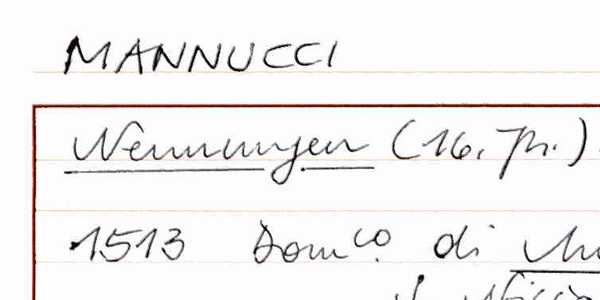 MANNUCCI
Nennungen (16. Jh.)
1513 Dom.co di